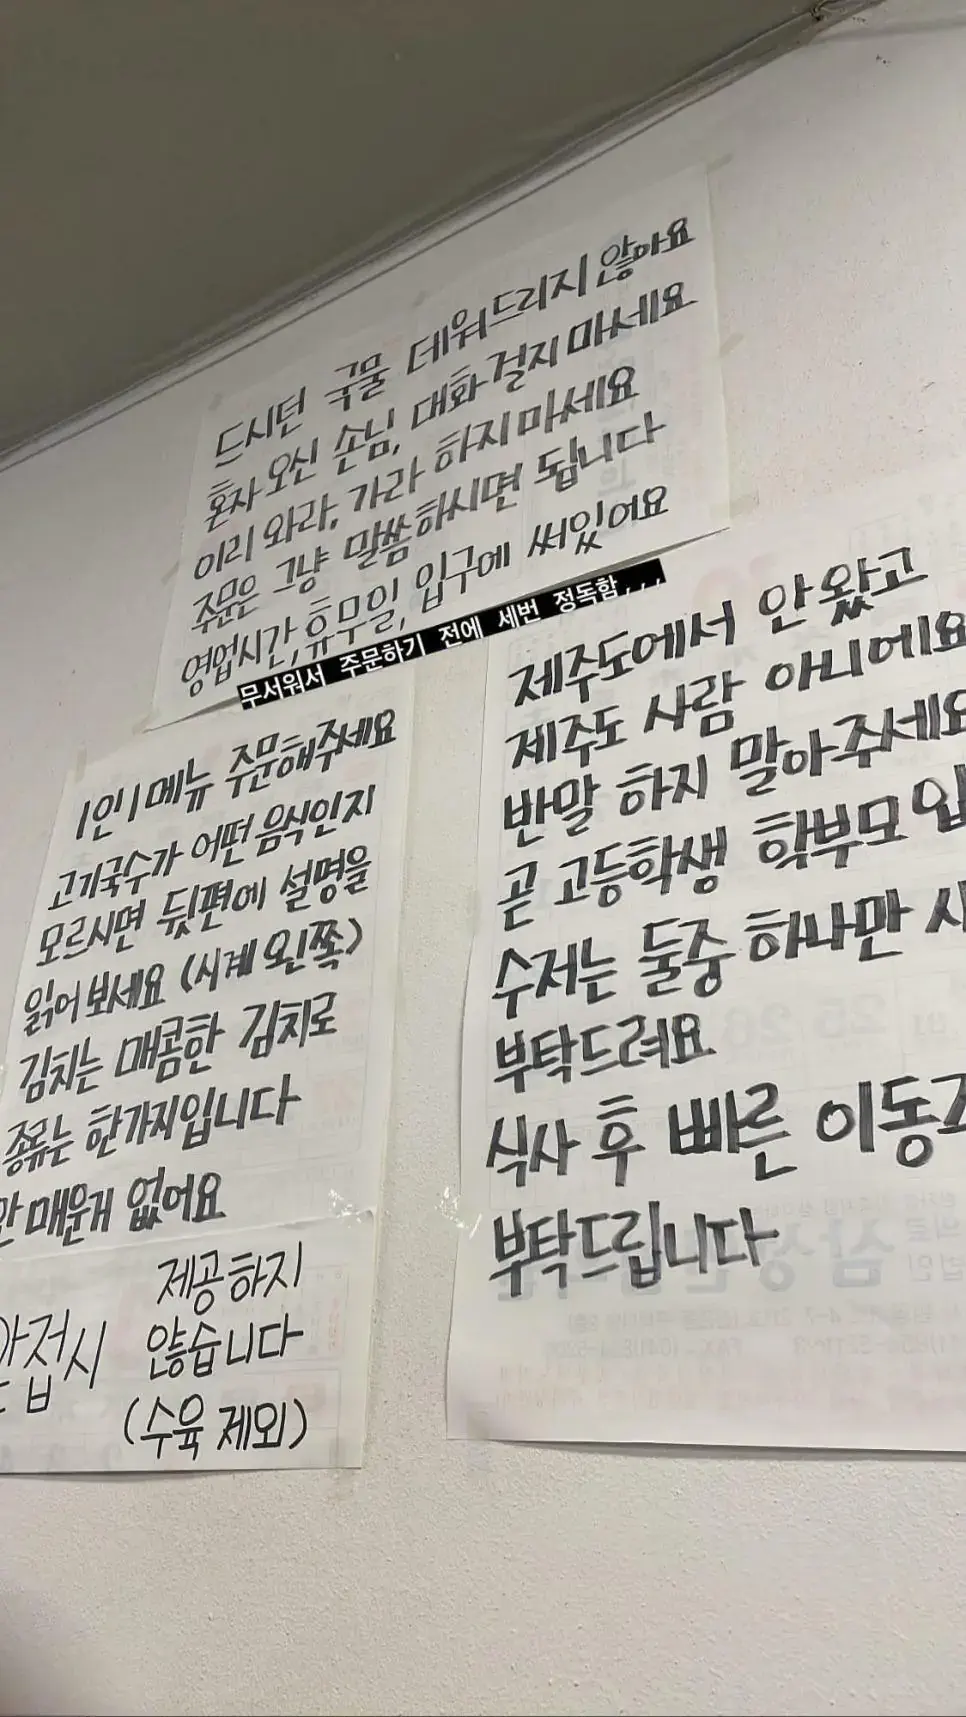 드시던 국물 데워드리지 않아요
혼자 오신 손님, 대화 걸지 마세요
이리 와라, 가라 하지마세요
주문은 그냥 말씀하시면 됩니다
영업시간, 휴무일, 입구에 써있어요
무서워서 주문하기 전에 세번 정독함,,,
1인 1메뉴 주문해주세요
고기국수가 어떤 음식인지
모르시면 뒷편에 설명을
읽어 보세요 (시계 왼쪽)
김치는 매콤한 김치로
종류는 한가지입니다
안 매운거 없어요
앞접시 제공하지
않습니다
(수육 제외)
제주도에서 안 왔고
제주도 사람 아니에요
반말 하지 말아주세요
곧 고등학생 학부모
수저는 둘중 하나만
부탁드려요
식사 후 빠른 이동
부탁드립니다